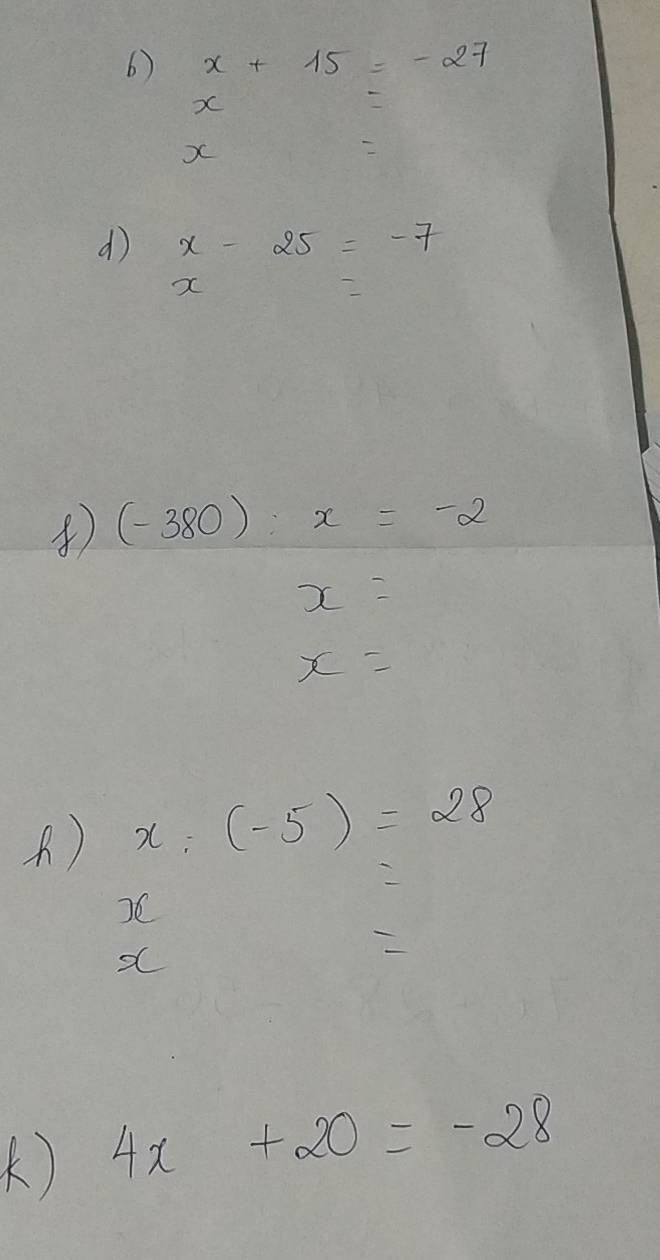 b) x + 15 = -27
x =
x =
d) x - 25 = -7
x =
f) (-380) : x = -2
x =
x =
h) x : (-5) = 28
x =
x =
k) 4x + 20 = -28